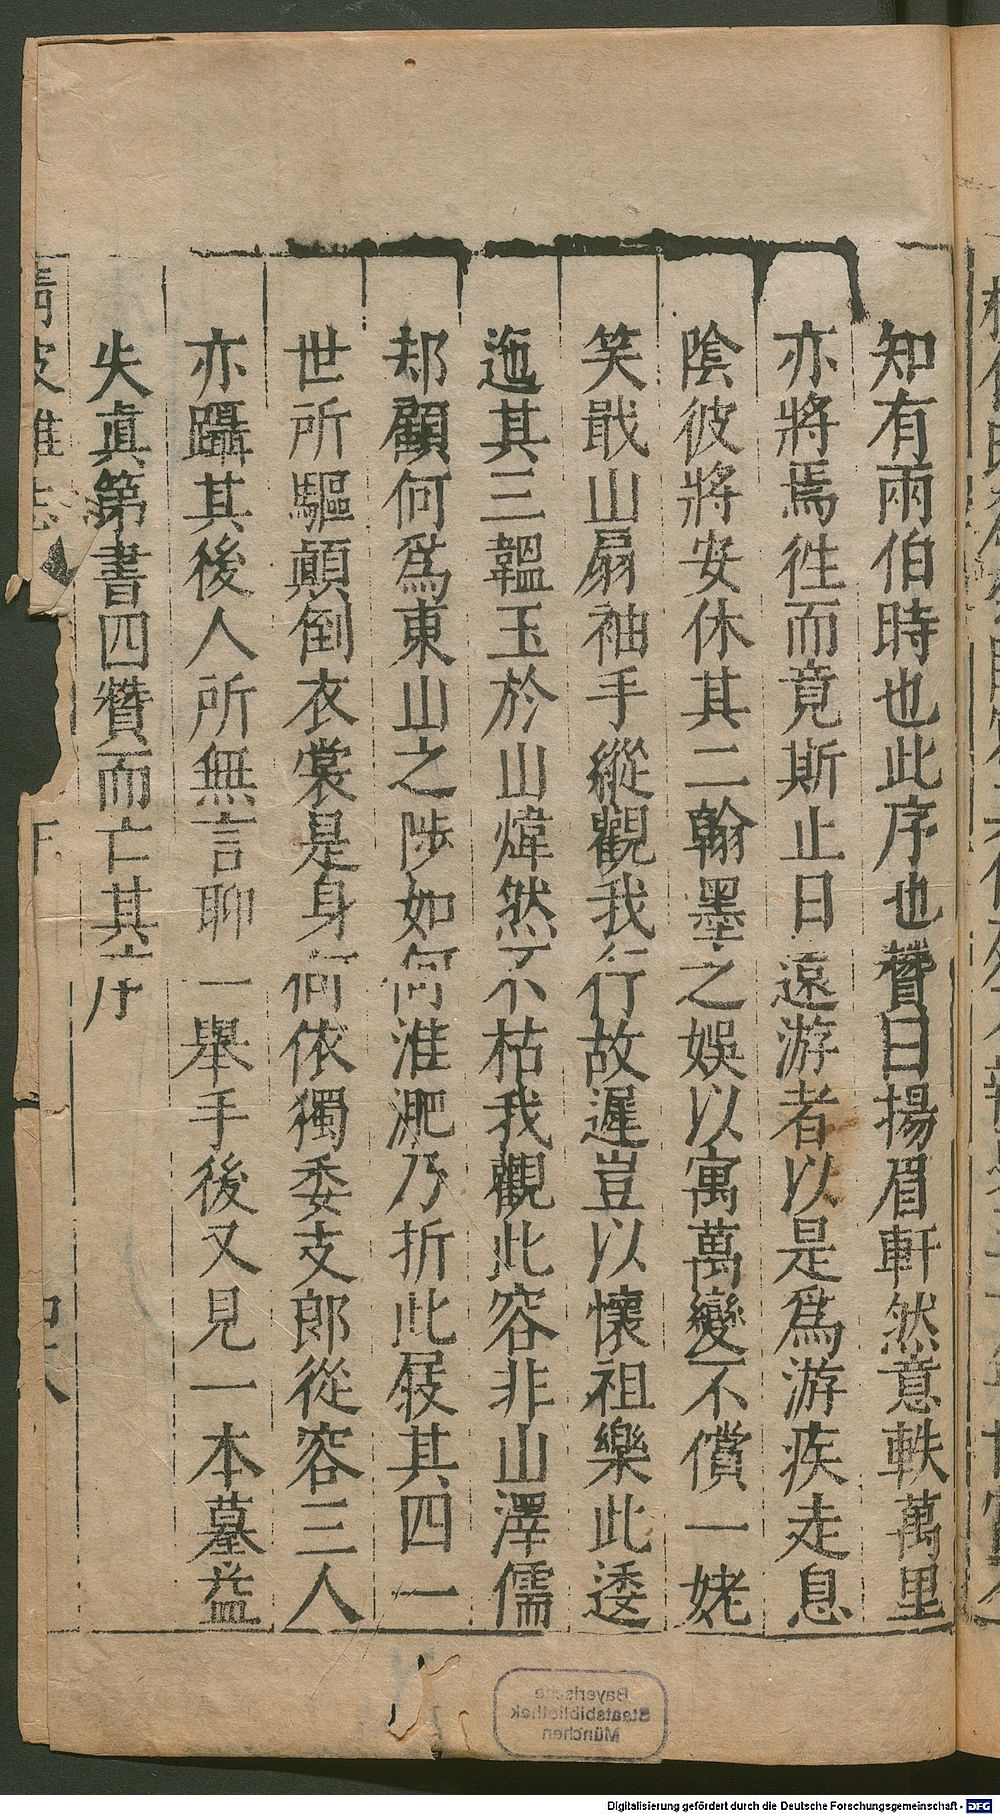 知有兩伯時也此序也贊曰揚眉軒然意軼萬里
亦將焉徃而竟斯止日遠游者以是爲游疾走息
陰彼將安休其二翰墨之娛以寓萬變不償一姥
笑戢山扇袖手縱觀我行故遲豈以懷祖樂此逶
迤其三韞玉於山煒然不枯我觀此容非山澤儒
却顧何爲東山之陟如何淮淝乃折此屐其四一
世所驅顛倒衣裳是身何依獨委支郎從容三人
亦躡其後人所無言聊一舉手後又見一本摹益
失眞第書四贊而亡其序
Bayerische
Staatsbibliothek
München
Digitalisierung gefördert durch die Deutsche Forschungsgemeinschaft - DFG